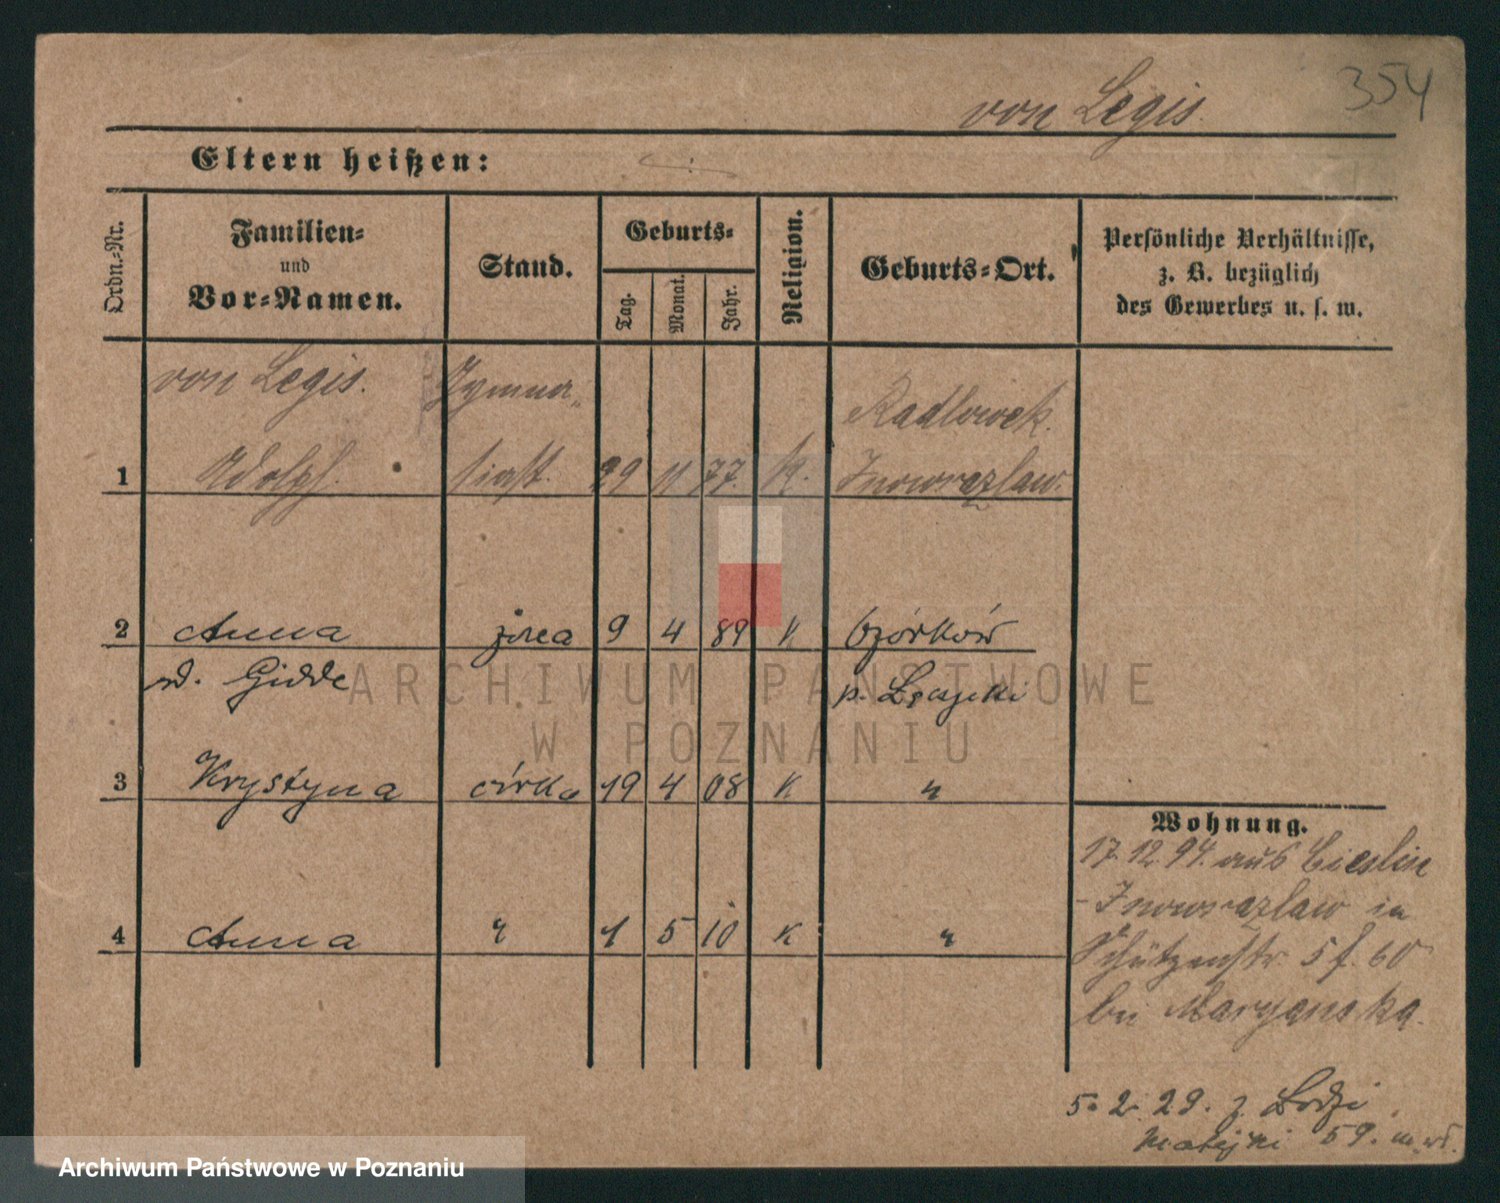 354
von Legis.
Eltern heißen:
Ordn.-Nr.
Familien-
und
Vor-Namen.
Stand.
Geburts-
Tag.
Monat.
Jahr.
Religion.
Geburts-Ort.
Persönliche Verhältnisse,
z. B. bezüglich
des Gewerbes u. s. w.
von Legis. Gymna-
Radlowek.
1 Adolph. siast. 29 11 77. K. Inowrazlaw.
2 Anna żona 9 4 89 K Ozórków
Gidde p. Łęczycki
3 Krystyna córka 19 4 08 K "
4 Anna " 1 5 10 K "
Wohnung.
17.12.94. aus Cieslin
- Inowrazlaw in
Schützenstr. 5 f. 60
bei Maryanska.
5. 2. 29. z Łodzi
Matejki 59.
ARCHIWUM PAŃSTWOWE
W POZNANIU
Archiwum Państwowe w Poznaniu